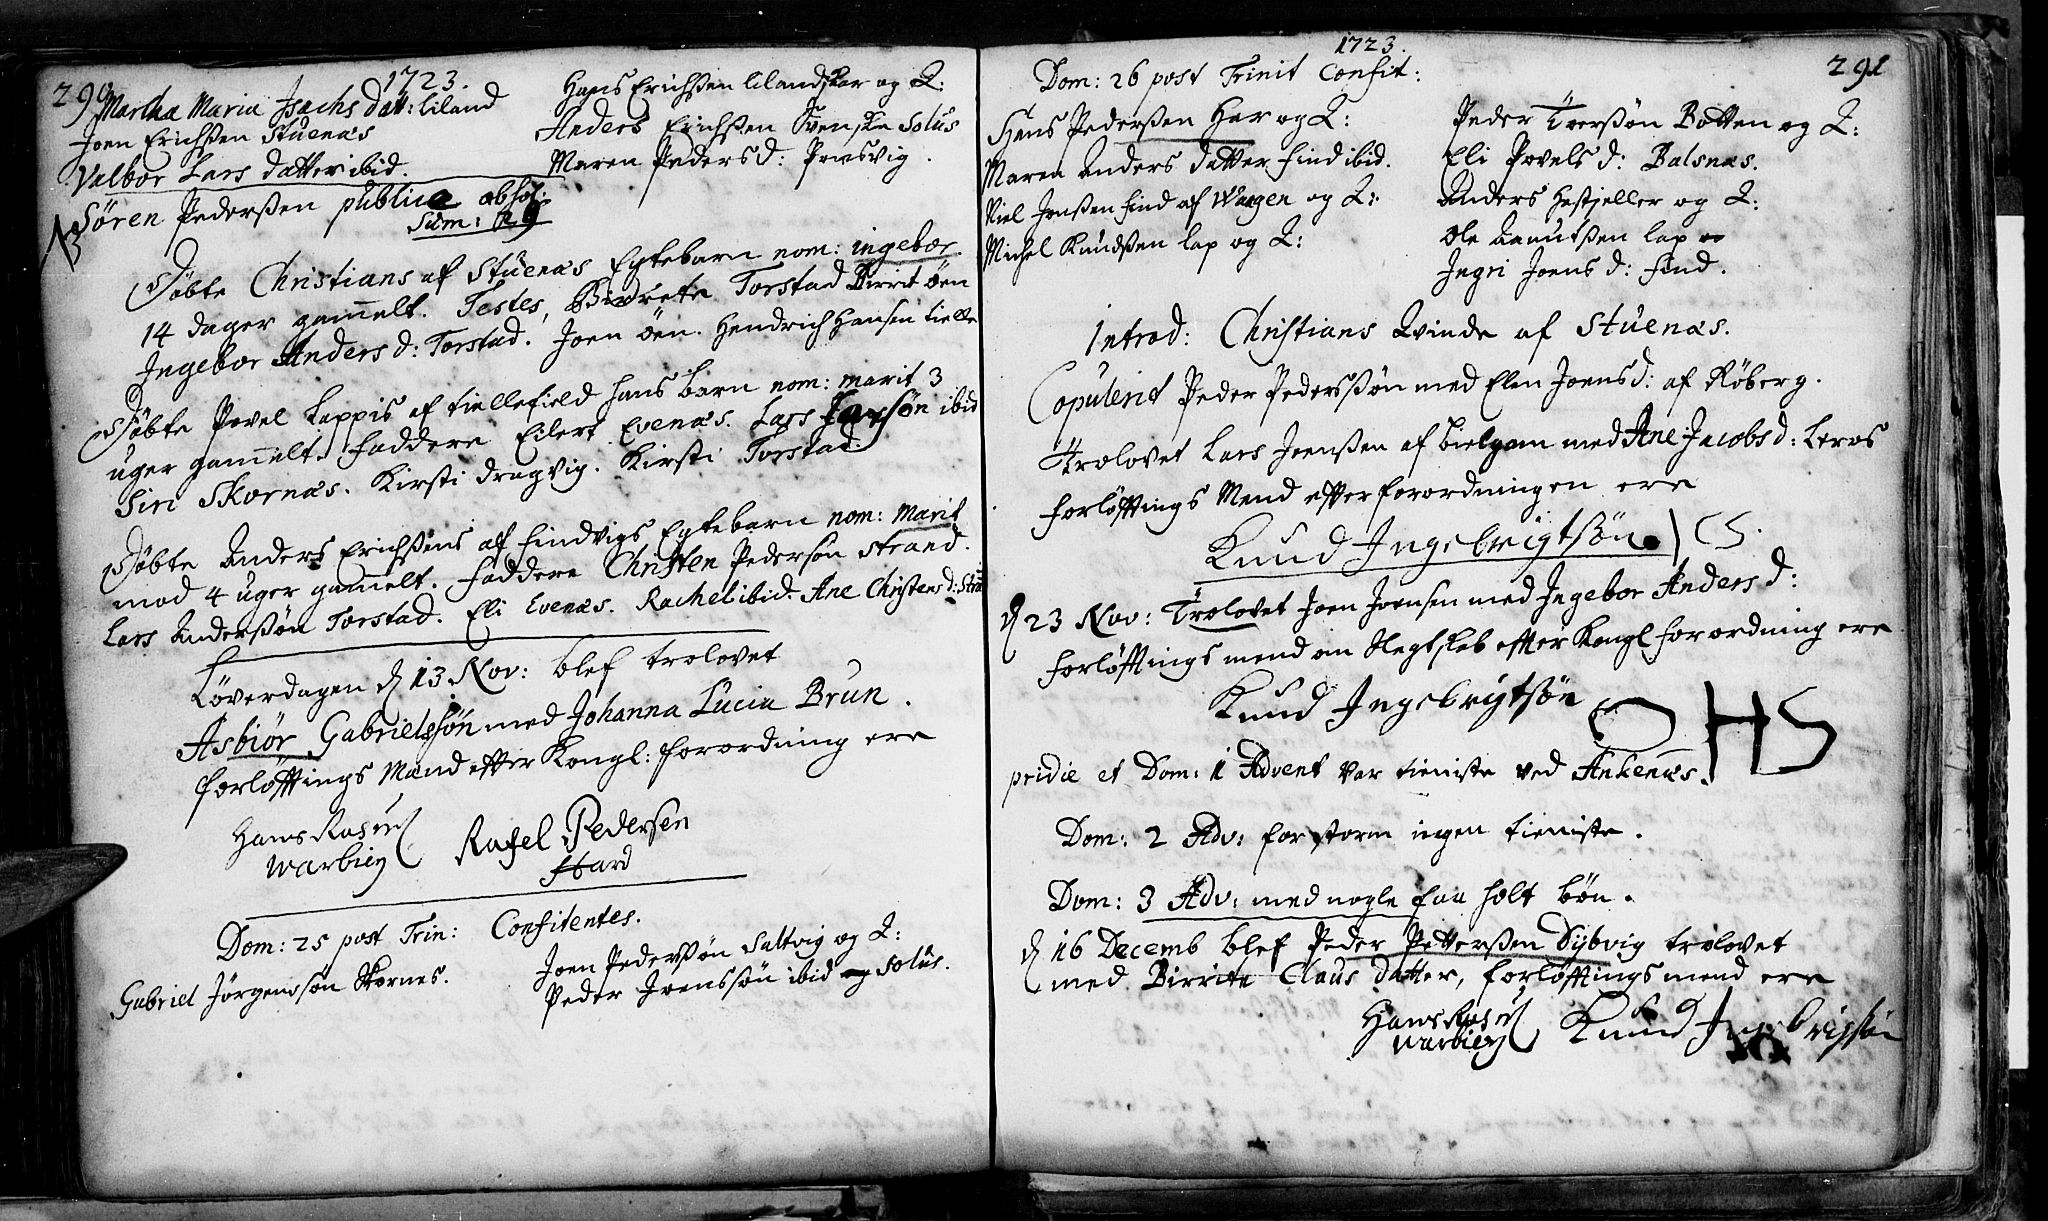 290
1723.
Martha Maria Isachs datt: liland
Joen Erichssen Stuenæs
Valbor Lars datter ibid.
Søren Pederssen publice absol:
Sum: 29
Hans Erichssen lilandskar og Q:
Anders Erichssen Svenske Solus
Maren Peders d: Præsvig.
Døbte Christians af Stuenæs Egtebarn nom: ingebor
14 dager gamelt. Testes, Birrete Torstad Birrit øen
Ingebor Anders d: Torstad. Joen øen. Hendrich Hansen tielle
Døbte Povel Lappis af tiellefield hans barn nom: marit 3
uger gamelt. Faddere Eilert Evenæs. Lars Larsøn ibid
Siri Skornæs. Kirsti dragvig. Kirsti Torstad
Døbte Anders Erichssens af findvigs Egtebarn nom: Marit
mod 4 uger gamelt. Faddere Christen Pedersøn Strand.
Lars Anderssøn Torstad. Eli Evenæs. Rachel ibid. Ane Christens d: Stra
Løverdagen d 13 Nov: blef trolovet
Asbiør Gabrielssøn med Johanna Lucia Brun.
forløftings Mænd efter Kongl: forordning ere
Hans Rasm
Warbien
Rafel Pedersen
Hard
Dom: 25 post Trin: Confitentes.
Gabriel Jørgenssøn Skornes.
Joen Pederssøn Saltvig og Q:
Peder Joenssøn ibid solus.
1723.
291
Dom: 26 post Trinit Confit:
Hans Pederssen Har og Q:
Maren Anders datter find ibid.
Niel Jonssen find af Waagen og Q:
Michel Knudssen lap og Q:
Peder Iverssøn Botten og Q:
Eli Povels d: Balsnæs.
Anders Hestfeller og Q:
Ole Knutssen lap
Ingri Joens d: find.
Introd: Christians Qvinde af Stuenæs.
Copulerit Peder Pederssøn med Elen Joens d: af Røberg.
Trolovet Lars Joenssen af bielgam med Ane Jacobs d: Leros
forløfftings Mend efter forordningen ere
Knud Ingebrigtsøn CS.
d 23 Nov: Trolovet Joen Joensen med Ingebor Anders d:
forløfftings mend om Slegtskab efter Kongl forordning ere
Knud Ingebrigtsøn HS
pridie et Dom: 1 Advent var tieniste ved Ankenæs.
Dom: 2 Adv: for storm ingen tieniste.
Dom: 3 Adv: med nogle faa holt bøn.
d 16 Decemb blef Peder Pettersen Dybvig trolovet
med Birrite Claus datter, forløfftings mend ere
Hans Rasm
Warbien
Knud Ingebrigtsøn